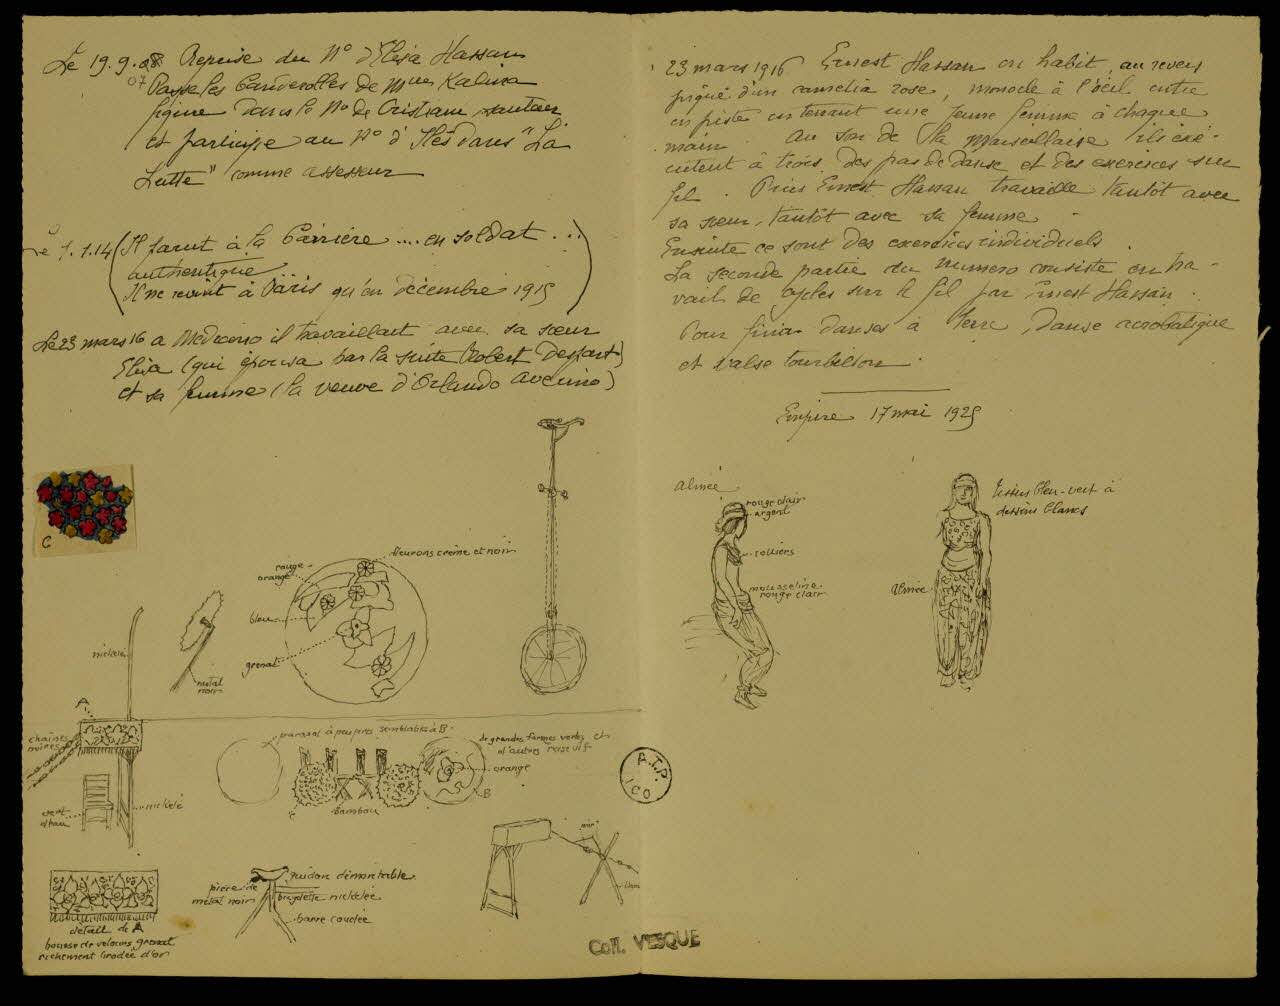 Le 19.9.08 Reprise du N° d'Elsia Hassan
07 Passe les banderolles de Mme Kalina
figure dans le N° de Cristiani sauteur
et participe au N° d'Iles dans "La
Lutte" comme assesseur
Le 1.1.14 (Il parut à la barrière .... en soldat ...
authentique
Il ne revint à Paris qu'en décembre 1915)
Le 23 mars 16 a Medrano il travaillait avec sa sœur
Elsia (qui épousa par la suite Robert Despart)
et sa femme (la veuve d'Orlando Averino)
C
fleurons crème et noir
rouge
orangé
bleu
grenat
nickelé
métal
noir
A
chaines
noires
vert
d'eau
nickelé
parasol à peu près semblable à B
de grandes formes vertes et
d'autres rose vif
orange
B
C
bambou
détail de A
housse de velours grenat
richement brodée d'or
guidon démontable
pièce de
métal noir
bicyclette nickelée
barre coudée
noir
23 mars 1916 Ernest Hassan en habit, au revers
piqué d'un camelia rose, monocle à l'œil entre
en piste en tenant une jeune femme à chaque
main. Au son de la Marseillaise ils exé-
cutent à trois des pas de danse et des exercices sur
fil. Puis Ernest Hassan travaille tantôt avec
sa sœur, tantôt avec sa femme.
Ensuite ce sont des exercices individuels.
La seconde partie du numero consiste en tra-
vail de cycles sur le fil par Ernest Hassan.
Pour finir danses à terre, danse acrobatique
et valse tourbillon.
Empire 17 mai 1925
Almée
rouge clair
argent
colliers
mousseline
rouge clair
tissus bleu-vert à
dessins blancs
Almée
A.T.P.
ICO
Coll. VESQUE